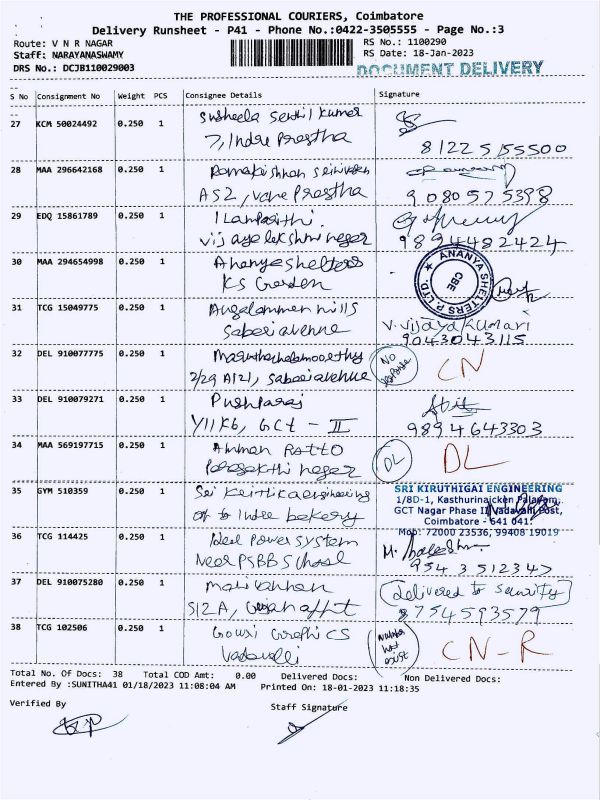 THE PROFESSIONAL COURIERS, Coimbatore
Delivery Runsheet - P41 - Phone No.:0422-3505555 - Page No.:3
Route: V N R NAGAR
RS No.: 1100290
Staff: NARAYANASWAMY
RS Date: 18-Jan-2023
DRS No.: DCJB110029003
DOCUMENT DELIVERY
S No Consignment No Weight PCS Consignee Details Signature
27 KCM 50024492 0.250 1 Susheela Senthil Kumar
7, Indra Prastha
8122515 5500
28 MAA 296642168 0.250 1
AS2, Vana Prastha
9080575398
29 EDQ 15861789 0.250 1
Vijayalakshmi nagar
9894482424
30 MAA 294654998 0.250 1 Ananya shelters
KS Garden
ANANYA SHELTERS P LTD
CBE
31 TCG 15049775 0.250 1 Angalamman mills
Sabari avenue
V. Vijayakumari
9043043115
32 DEL 910077775 0.250 1
2/29 A121, Sabari avenue
No response
CN
33 DEL 910079271 0.250 1 Pushparaj
Y11K6, GCT - II
9894643303
34 MAA 569197715 0.250 1 Amman
Parasakthi nagar
DL DL
35 GYM 510359 0.250 1 Sri Kirithika engineering
op to Indira bakery
SRI KIRUTHIGAI ENGINEERING
1/8D-1, Kasthurinaicken Palayam,
GCT Nagar Phase II Vadavalli Post,
Coimbatore - 641 041.
Mob: 72000 23536, 99408 19019
36 TCG 114425 0.250 1 Ideal Power System
Near PSBB School
9543512347
37 DEL 910075280 0.250 1 Manivannan
S12 A,
Delivered to security
8754593579
38 TCG 102506 0.250 1 Gowri Graphics
Vadavalli
Number not exist
CN-R
Total No. Of Docs: 38 Total COD Amt: 0.00 Delivered Docs: Non Delivered Docs:
Entered By :SUNITHA41 01/18/2023 11:08:04 AM Printed On: 18-01-2023 11:18:35
Verified By
Staff Signature